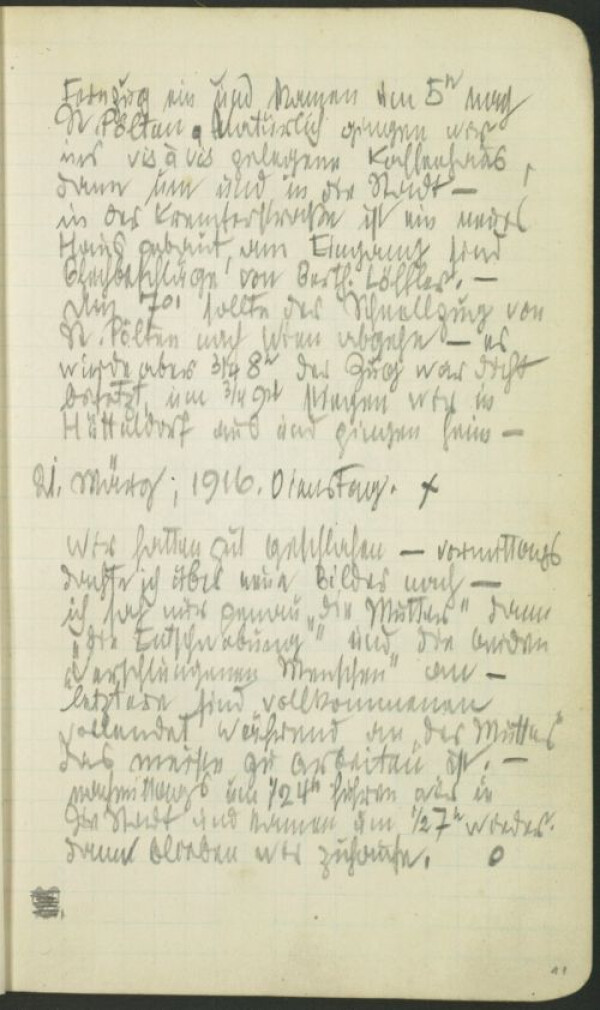 Fernzug ein und kamen um 5h nach
St. Pölten. Natürlich gingen wir
ins vis à vis gelegene Kaffeehaus,
dann um und in die Stadt —
in der Kremserstraße ist ein neues
Haus gebaut, am Eingang sind
Blechbeschläge von Berth. Löffler. —
Um 701 sollte der Schnellzug von
St. Pölten nach Wien abgehn — es
wurde aber 3/4 8h der Zug war dicht
besetzt, um 3/4 9h stiegen wir in
Hütteldorf aus und gingen heim —
21. März; 1916. Dienstag. x
Wir hatten gut geschlafen — vormittags
dachte ich über neue Bilder nach —
ich sah mir genau „die Mutter" dann
„die Entschwebung" und die beiden
„verschlungenen Menschen" an —
letztere sind vollkommenen
vollendet während an „der Mutter"
das meiste zu arbeiten ist. —
nachmittags um 1/2 4h fuhren wir in
die Stadt und kamen um 1/2 7h wieder.
dann blieben wir zuhause. o